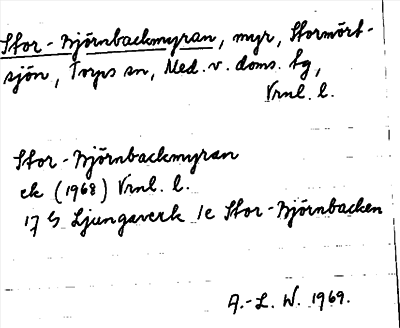 Stor-Björnbackmyran, myr, Stormört-
sjön, Torps sn, Med. v. doms. tg,
Vrnl. l.
Stor-Björnbackmyran
ek (1968) Vrnl. l.
17 G Ljungaverk 1c Stor-Björnbacken
A.-L. W. 1969.